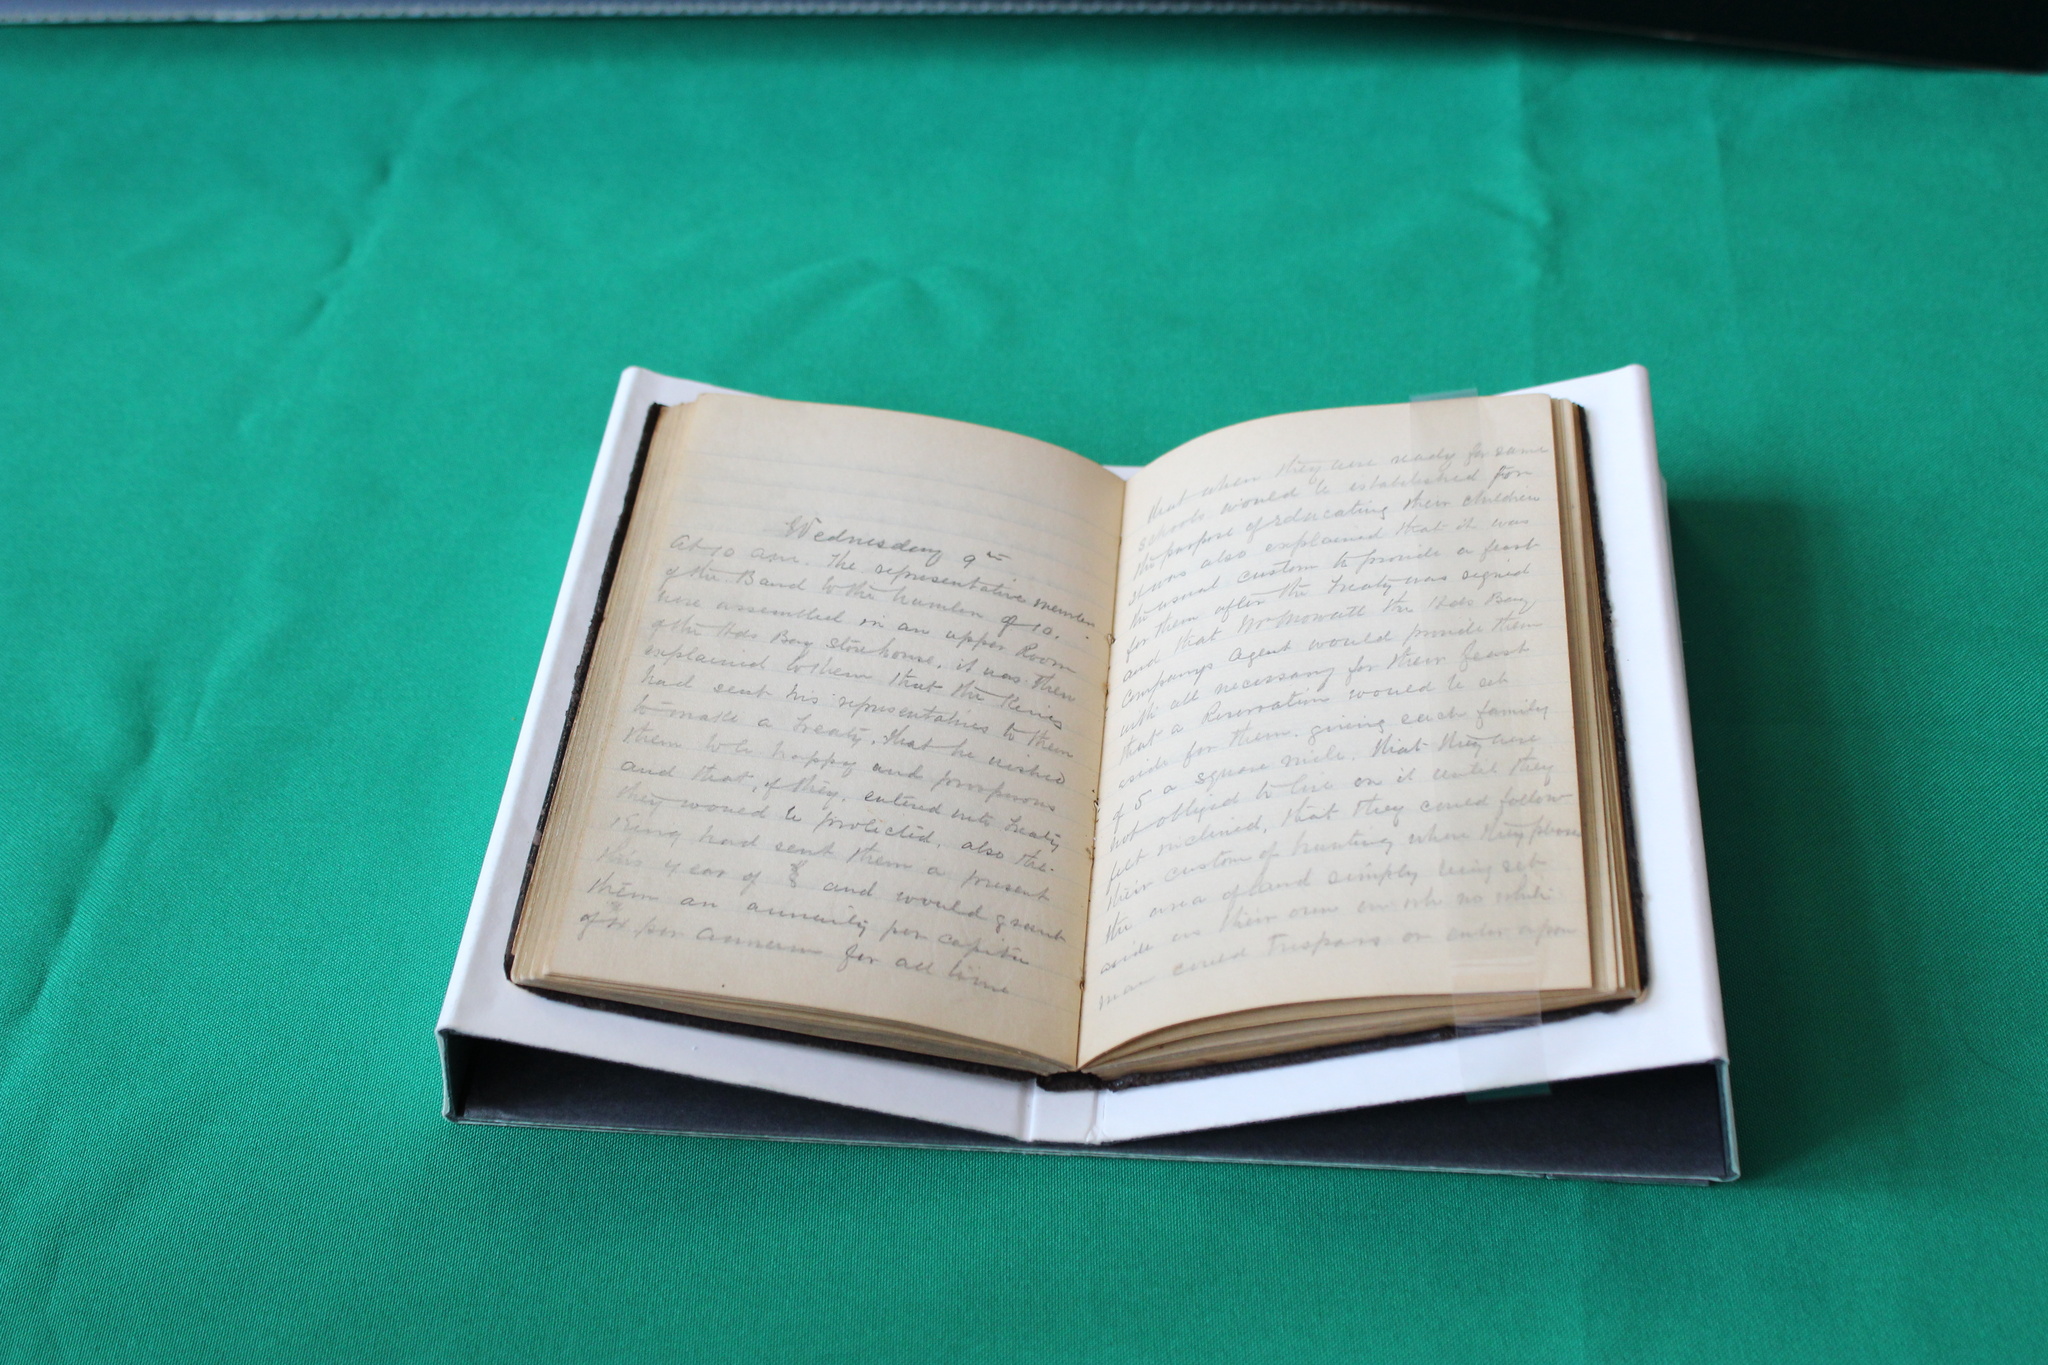 Wednesday 9th
At 10 am. The representative members
of the Band to the number of 10.
were assembled in an upper Room
of the Hds Bay Storehouse, it was then
explained to them that the King
had sent his representatives to them
to make a Treaty, that he wished
them to be happy and prosperous
and that, if they, entered into Treaty
they would be protected, also the
King had sent them a present
this year of $8 and would grant
them an annuity per capita
of $4 per annum for all time
that when they were ready for same
schools would be established for
the purpose of educating their children
it was also explained that it was
the usual custom to provide a feast
for them after the Treaty was signed
and that Mr Mowatt the Hds Bay
Companys Agent would provide them
with all necessary for their feast
that a Reservation would be set
aside for them, giving each family
of 5 a square mile, that they were
not obliged to live on it until they
felt inclined, that they could follow
their custom of hunting where they please
the area of land simply being set
aside as their own on wh no white
man could trespass or enter upon